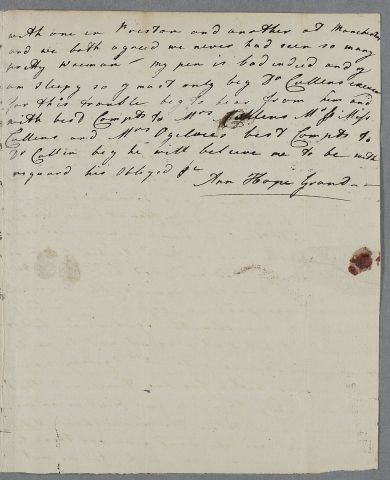 with one in Preston and another at Manchester
and we both agreed we never had seen so many
pretty Woeman - my pen is bad indeed and y
am sleepy so y must only beg Dr Cullens excuse
for this trouble beg to hear from him and
with best Compts to Mrs Cullens Miss
Cullens and Mrs Ogelvies best Compts to
Dr Cullin beg he will beleive me to be with
reguard his Obleged &c
Ann Hope Grand